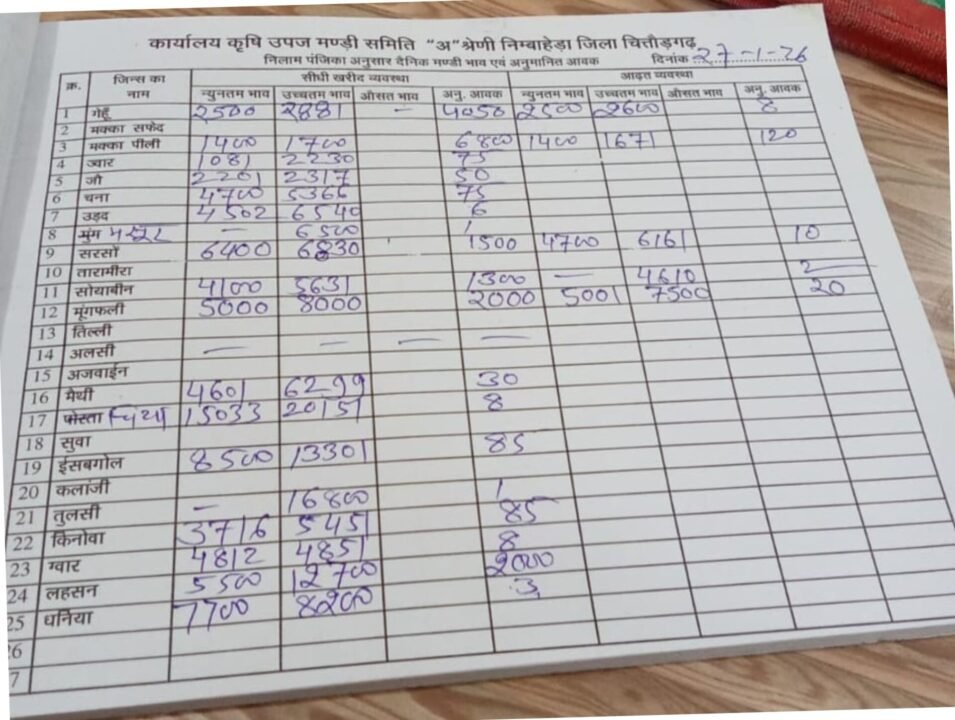 कार्यालय कृषि उपज मण्डी समिति "अ" श्रेणी निम्बाहेड़ा जिला चित्तौड़गढ़
निलाम पंजिका अनुसार दैनिक मण्डी भाव एवं अनुमानित आवक दिनांक 27-1-26
क्र. जिन्स का नाम सीधी खरीद व्यवस्था आढ़त व्यवस्था
न्युनतम भाव उच्चतम भाव औसत भाव अनु. आवक न्युनतम भाव उच्चतम भाव औसत भाव अनु. आवक
1 गेहूँ 2500 2881 — 4050 2500 2600 8
2 मक्का सफेद
3 मक्का पीली 1400 1700 6800 1400 1671 120
4 ज्वार 1081 2230 75
5 जौ 2201 2317 50
6 चना 4700 5366 75
7 उड़द 4502 6540 6
8 मुंग मसूर — 6500 1
9 सरसों 6400 6830 1500 4700 6161 10
10 तारामीरा
11 सोयाबीन 4100 5631 1300 — 4610 2
12 मूंगफली 5000 8000 2000 5001 7500 20
13 तिल्ली
14 अलसी — — — —
15 अजवाईन
16 मैथी 4601 6299 30
17 पोस्ता चिया 15033 20151 8
18 सुवा
19 ईसबगोल 8500 13301 85
20 कलांजी
21 तुलसी — 16800 1
22 किनोवा 3716 5451 85
23 ग्वार 4812 4851 8
24 लहसन 5500 12700 2000
25 धनिया 7700 8200 3
26
7